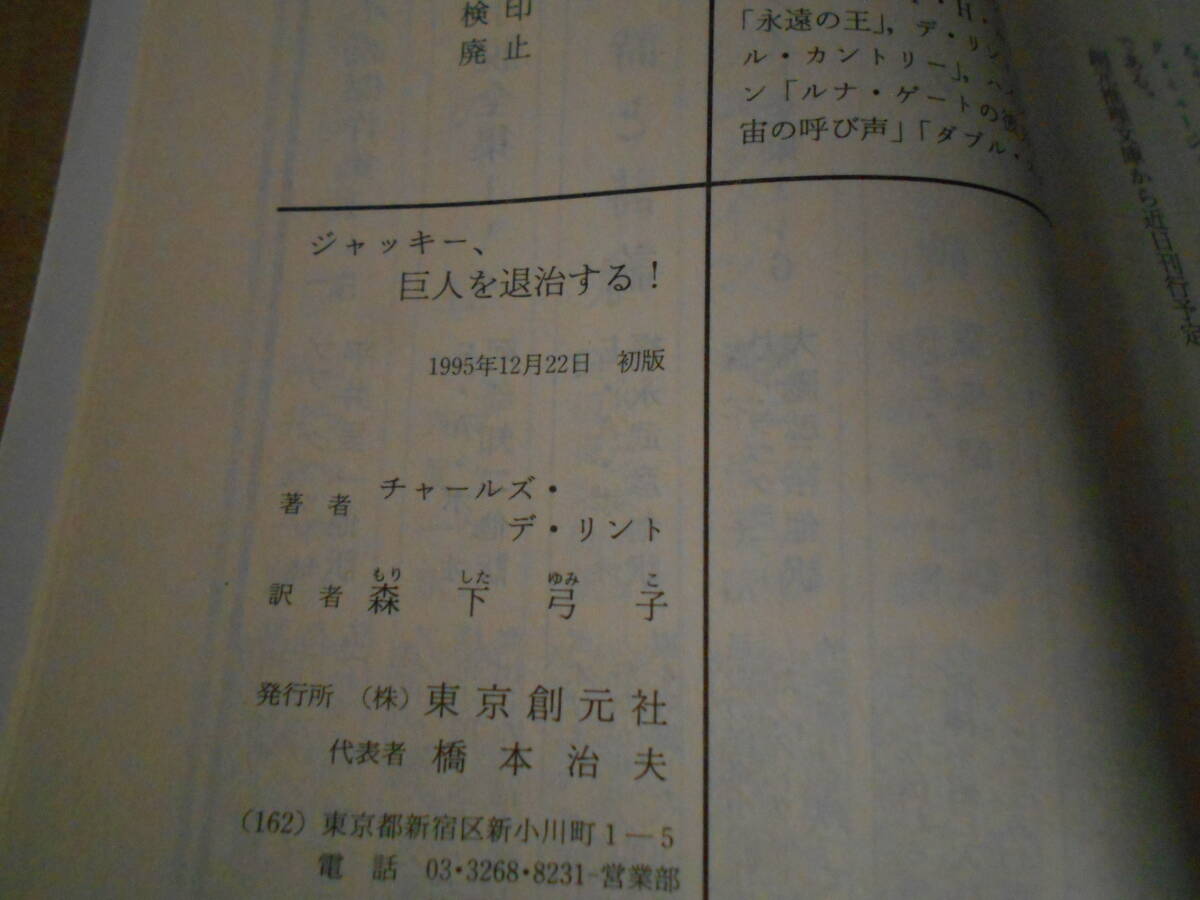 検印
廃止
「永遠の王」, デ・リン
ル・カントリー」, ハイ
ン「ルナ・ゲートの彼
宙の呼び声」「ダブル・
から近日刊行予定
ジャッキー、
巨人を退治する！
1995年12月22日 初版
著者 チャールズ・
デ・リント
もり した ゆみ こ
訳者 森下弓子
発行所 （株）東京創元社
代表者 橋本治夫
（162）東京都新宿区新小川町1―5
電話 03・3268・8231-営業部